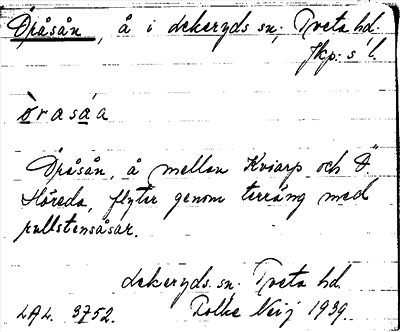 Öråsån, å i Askeryds sn; Tveta hd.
Jkp: s l.
òrasáa
Öråsån, å mellan Kviarp och Ö.
Höreda, flyter genom terräng med
rullstensåsar.
Askeryds sn. Tveta hd.
LAL. 3752. Tolke Neij 1939.